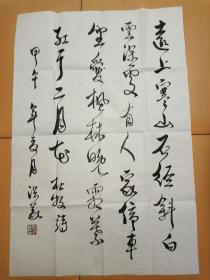 遠上寒山石徑斜白
雲深處有人家停車
坐愛楓林晚霜葉
紅于二月花 杜牧詩
甲午年夏月